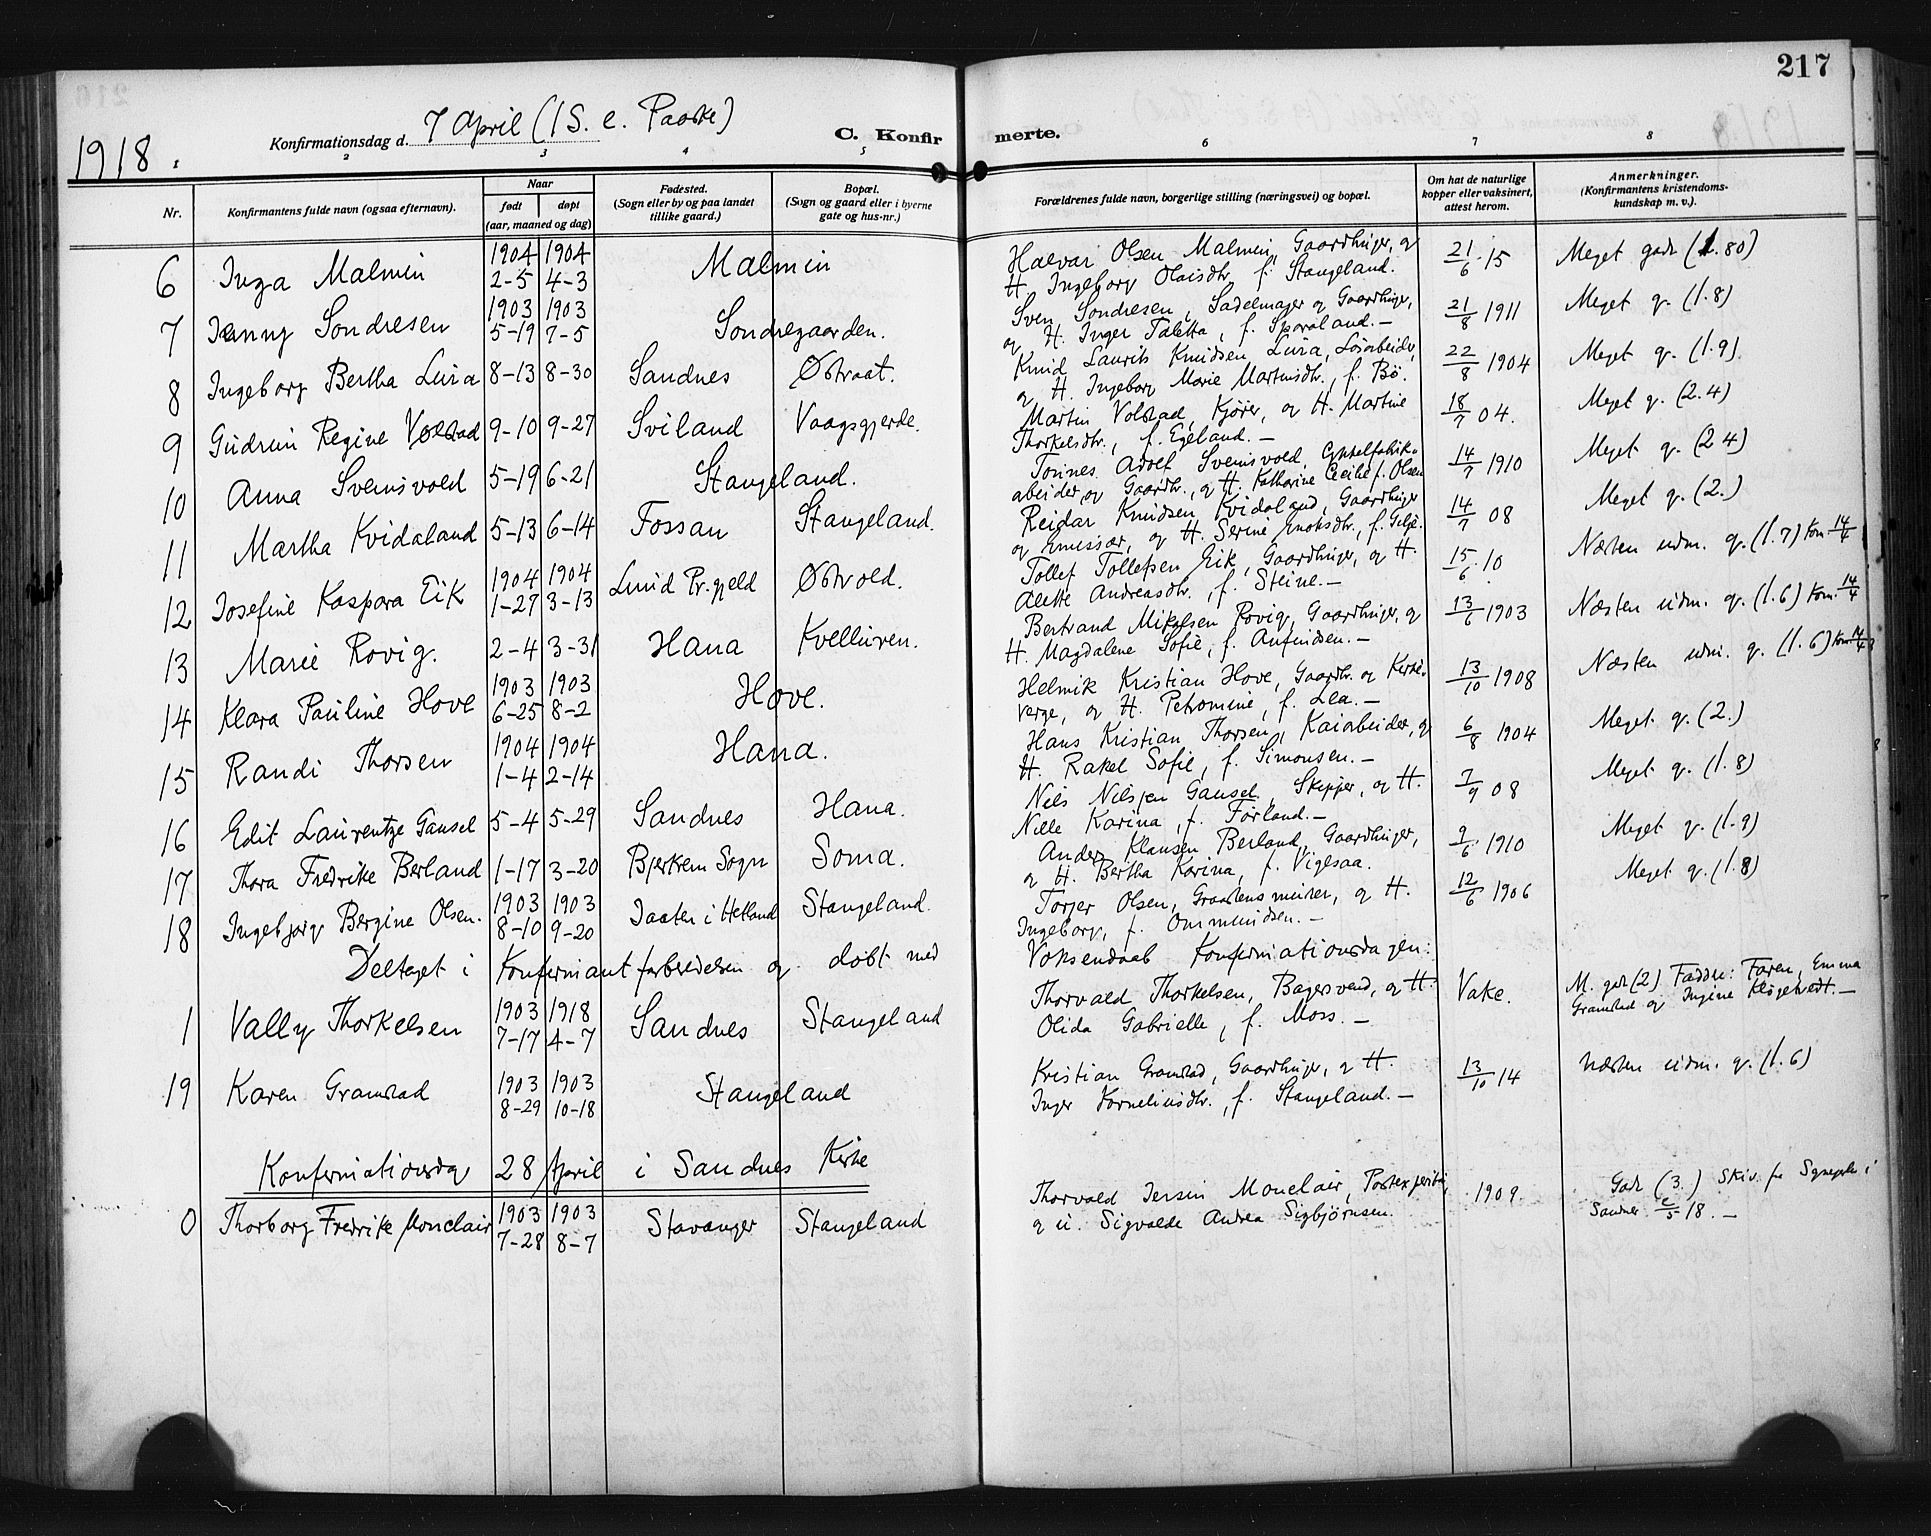 217
1918. Konfirmationsdag d. 7 April (1 S. e. Paaske) C. Konfirmerte.
2 3 4 5 6 7 8
Nr. Konfirmantens fulde navn (ogsaa efternavn). Naar født døpt (aar, maaned og dag) Fødested. (Sogn eller by og paa landet tillike gaard.) Bopæl. (Sogn og gaard eller i byerne gate og hus-nr.) Forældrenes fulde navn, borgerlige stilling (næringsvei) og bopæl. Om hat de naturlige kopper eller vaksinert, attest herom. Anmerkninger. (Konfirmantens kristendomskundskap m. v.).
6 Inga Malmin 1904 2-5 1904 4-3 Malmin Halvar Olsen Malmin, Gaardbruger, og H. Ingeborg Olaisdtr. f. Stangeland. 21/6 15 Meget godt (1.80)
7 Jenny Sondresen 1903 5-19 1903 7-5 Sondregaarden. Sven Sondresen, Sadelmager og Gaardbruger, og H. Inger Taletta, f. Sporaland. - 21/8 1911 Meget g. (1.8)
8 Ingeborg Bertha Lura 8-13 8-30 Sandnes Østraat. Knud Laurits Knudsen Lura, Løsarbeider, og H. Ingeborg Marie Martinsdtr., f. Bø. 22/8 1904 Meget g. (1.9).
9 Gudrun Regine Volstad 9-10 9-27 Sviland Vaagsgjerde. Martin Volstad, Kjører, og H. Martine Thorkelsdtr., f. Egeland. - 18/7 04. Meget g. (2.4)
10 Anna Svensvold 5-19 6-21 Stangeland. Tønnes Adolf Svensvold, Cykkelfabrikarbeider og Gaardbr., og H. Kathrine Cecilie f. Olsen 14/7 1910 Meget g. (2 4)
11 Martha Kvidaland 5-13 6-14 Fossan Stangeland. Reidar Knudsen Kvidaland, Gaardbruger og Emissær, og H. Serine Enoksdtr., f. Gilje. 14/7 08 Meget g. (2.)
12 Josefine Kaspara Eik 1904 1-27 1904 3-13 Lund Pr.gjeld Østvold. Tollef Tollefsen Eik, Gaardbruger, og H. Alette Andreasdtr., f. Steine. - 15/6 10 Næsten udm. g. (1.7) Kom. 14/4
13 Marie Rovig. 2-4 3-31 Hana Kvelluren. Bertrand Mikalsen Rovig, Gaardbruger, og H. Magdalene Sofie, f. Anfindsen. - 13/6 1903 Næsten udm. g. (1.6) Kom. 14/4
14 Klara Pauline Hove 1903 6-25 1903 8-2 Hove. Helmik Kristian Hove, Gaardbr. og Kirkeverge, og H. Petromine, f. Lea. - 13/10 1908 Næsten udm. g. (1.6) Kom. 14/4
15 Randi Thorsen 1904 1-4 1904 2-14 Hana. Hans Kristian Thorsen, Kaiarbeider, og H. Rakel Sofie, f. Simonsen. - 6/8 1904 Meget g. (2.)
16 Edit Laurentze Gausel 5-4 5-29 Sandnes Hana. Nils Nilsen Gausel, Skipper, og H. Nille Karina, f. Førland. - 7/9 08 Meget g. (1.8)
17 Thora Fredrikke Berland 1-17 3-20 Bjerkrem Sogn Soma. Anders Klausen Berland, Gaardbruger, og H. Bertha Karina, f. Vigesaa. 9/6 1910 Meget g. (1.9)
18 Ingeborg Bergine Olsen. 1903 8-10 1903 9-20 Jaaten i Hetland Stangeland. Torjer Olsen, Graastensmurer, og H. Ingeborg, f. Ommundsen. - 12/6 1906 Meget g. (1.8)
Deltaget i Konfirmantforberedelsen og døbt med Voksendaab Konfirmationsdagen:
1 Vally Thorkelsen 1903 7-17 1918 4-7 Sandnes Stangeland Thorvald Thorkelsen, Bagersvend, og H. Olida Gabrielle, f. Moss. - Vake. M. godt (2) Faddre: Faren, Emma Gramstad og Ingine Kløgetvedt. -
19 Karen Gramstad 1903 8-29 1903 10-18 Stangeland Kristian Gramstad, Gaardbruger, og H. Inger Kornelinsdtr., f. Stangeland. - 13/10 14 Næsten udm. g. (1.6)
Konfirmationsdag 28 April i Sandnes Kirke
0 Thorborg Fredrikke Monclair 1903 7-28 1903 8-7 Stavanger Stangeland Thorvald Jersin Monclair, Postexpeditør, og u. Sigvalde Andrea Sigbjørnsen. 1909. Godt (3.) Skiv. fra Sognepr. i Sandnes 2/5 18. -